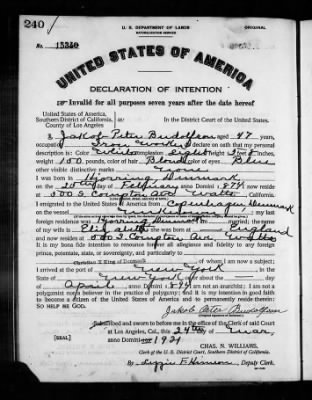 240
U. S. DEPARTMENT OF LABOR
NATURALIZATION SERVICE
ORIGINAL
No. 15350
UNITED STATES OF AMERICA
DECLARATION OF INTENTION
Invalid for all purposes seven years after the date hereof
United States of America,
Southern District of California, ss:
County of Los Angeles
In the District Court of the United States.
I, Jakob Peter Budolfson, aged 47 years,
occupation Iron Worker, declare on oath that my personal
description is: Color White, complexion, height 5 feet inches,
weight 100 pounds, color of hair Blond, color of eyes Blue
other visible distinctive marks None
I was born in Hjorring Denmark
on the 20 day of, anno Domini 1874; I now reside
at Compton Ave Watts, California.
I emigrated to the United States of America from Copenhagen Denmark
on the vessel; my last
foreign residence was Hjorring Denmark; I am married; the name
of my wife is Elizabeth; she was born in England
and now resides at Compton Ave Watts
It is my bona fide intention to renounce forever all allegiance and fidelity to any foreign
prince, potentate, state, or sovereignty, and particularly to
Christian X King of Denmark, of whom I am now a subject;
I arrived at the port of New York, in the
State of New York, on or about the day
of April, anno Domini; I am not an anarchist; I am not a
polygamist nor a believer in the practice of polygamy; and it is my intention in good faith
to become a citizen of the United States of America and to permanently reside therein:
SO HELP ME GOD.
Jakob Peter Budolfson
Subscribed and sworn to before me in the office of the Clerk of said Court
at Los Angeles, Cal., this 24th day of
[SEAL]
anno Domini 1921
CHAS. N. WILLIAMS,
Clerk of the U. S. District Court, Southern District of California.
By, Deputy Clerk.